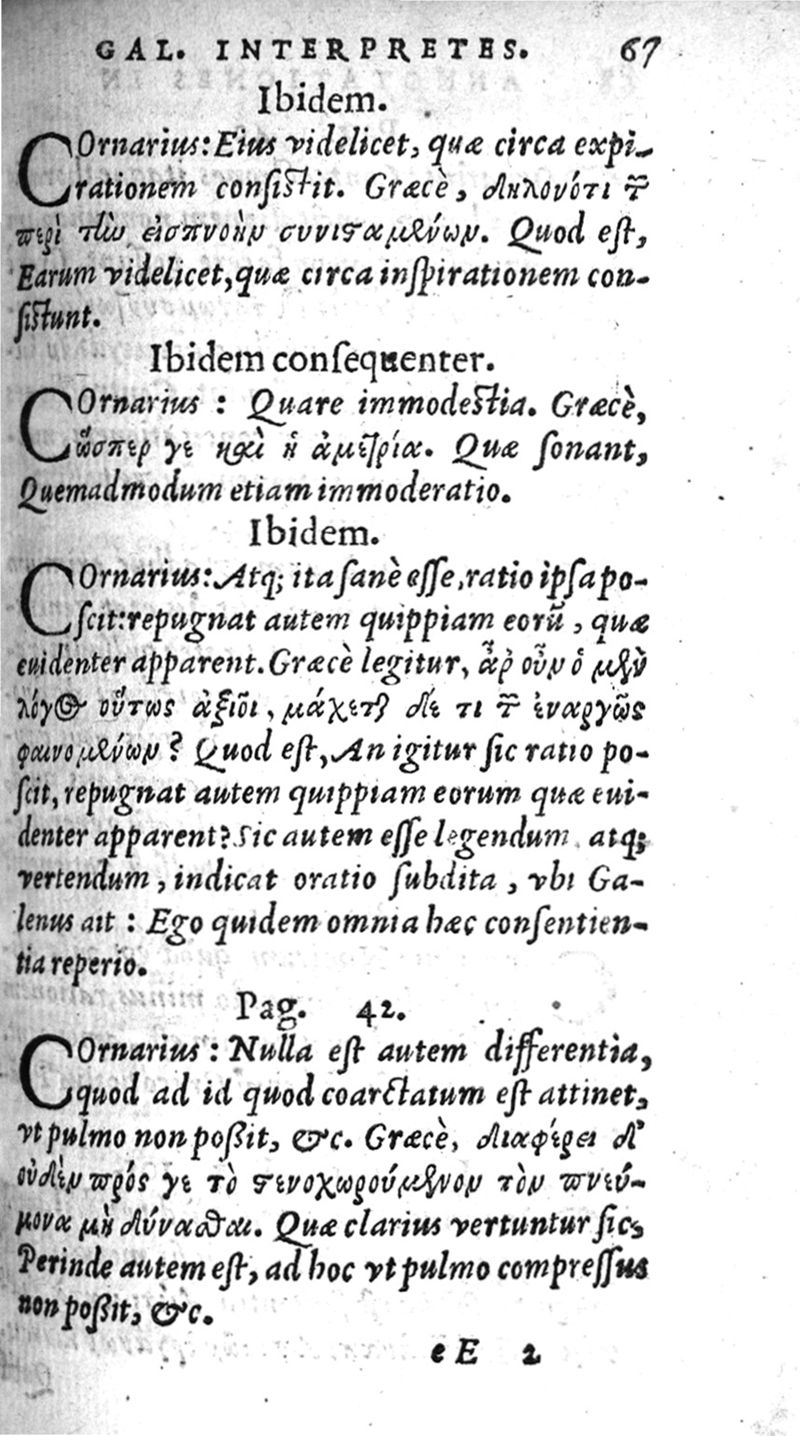 GAL. INTERPRETES. 67
Ibidem.
COrnarius: Eius videlicet, quæ circa expi-
rationem consistit. Græcè, δηλονότι τῶν
περὶ τὴν εἰσπνοὴν συνισταμένων. Quod est,
Earum videlicet, quæ circa inspirationem con-
sistunt.
Ibidem consequenter.
COrnarius : Quare immodestia. Græcè,
ὥσπερ γε καὶ ἡ ἀμετρία. Quæ sonant,
Quemadmodum etiam immoderatio.
Ibidem.
COrnarius: Atq; ita sanè esse, ratio ipsa po-
scit: repugnat autem quippiam eorũ, quæ
euidenter apparent. Græcè legitur, ἆρ οὖν ὁ μὲν
λόγος οὕτως ἀξιοῖ, μάχεται δέ τι τῶν ἐναργῶς
φαινομένων? Quod est, An igitur sic ratio po-
scit, repugnat autem quippiam eorum quæ eui-
denter apparent? Sic autem esse legendum atq;
vertendum, indicat oratio subdita, vbi Ga-
lenus ait : Ego quidem omnia hæc consentien-
tia reperio.
Pag. 42.
COrnarius : Nulla est autem differentia,
quod ad id quod coarctatum est attinet,
vt pulmo non poßit, &c. Græcè, διαφέρει δ'
οὐδὲν πρός γε τὸ στενοχωρούμενον τὸν πνεύ-
μονα μὴ δύνασθαι. Quæ clarius vertuntur sic,
Perinde autem est, ad hoc vt pulmo compressus
non poßit, &c.
eE 2